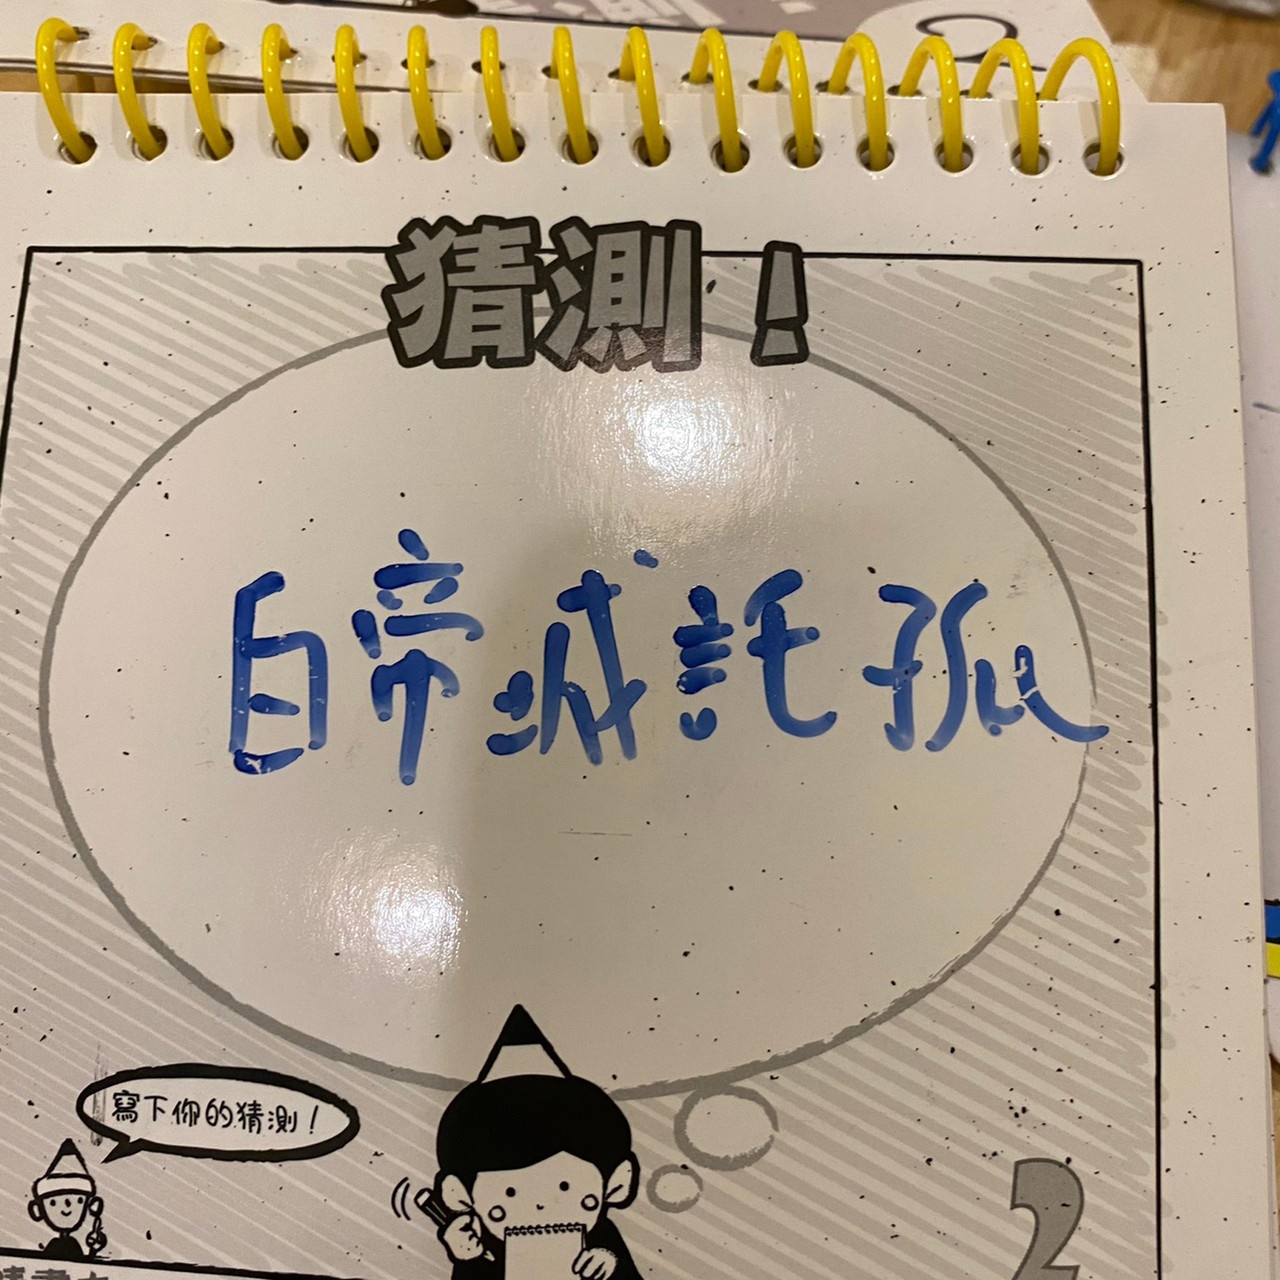 猜測！
白帝城託孤
寫下你的猜測！
2